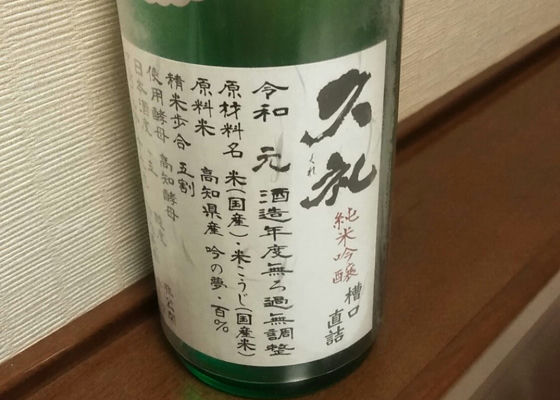 久礼
くれ
純米吟醸 槽口
直詰
令和元酒造年度無ろ過無調整
原材料名 米(国産)・米こうじ(国産米)
原料米 高知県産 吟の夢・百%
精米歩合 五割
使用酵母 高知酵母
日本酒度